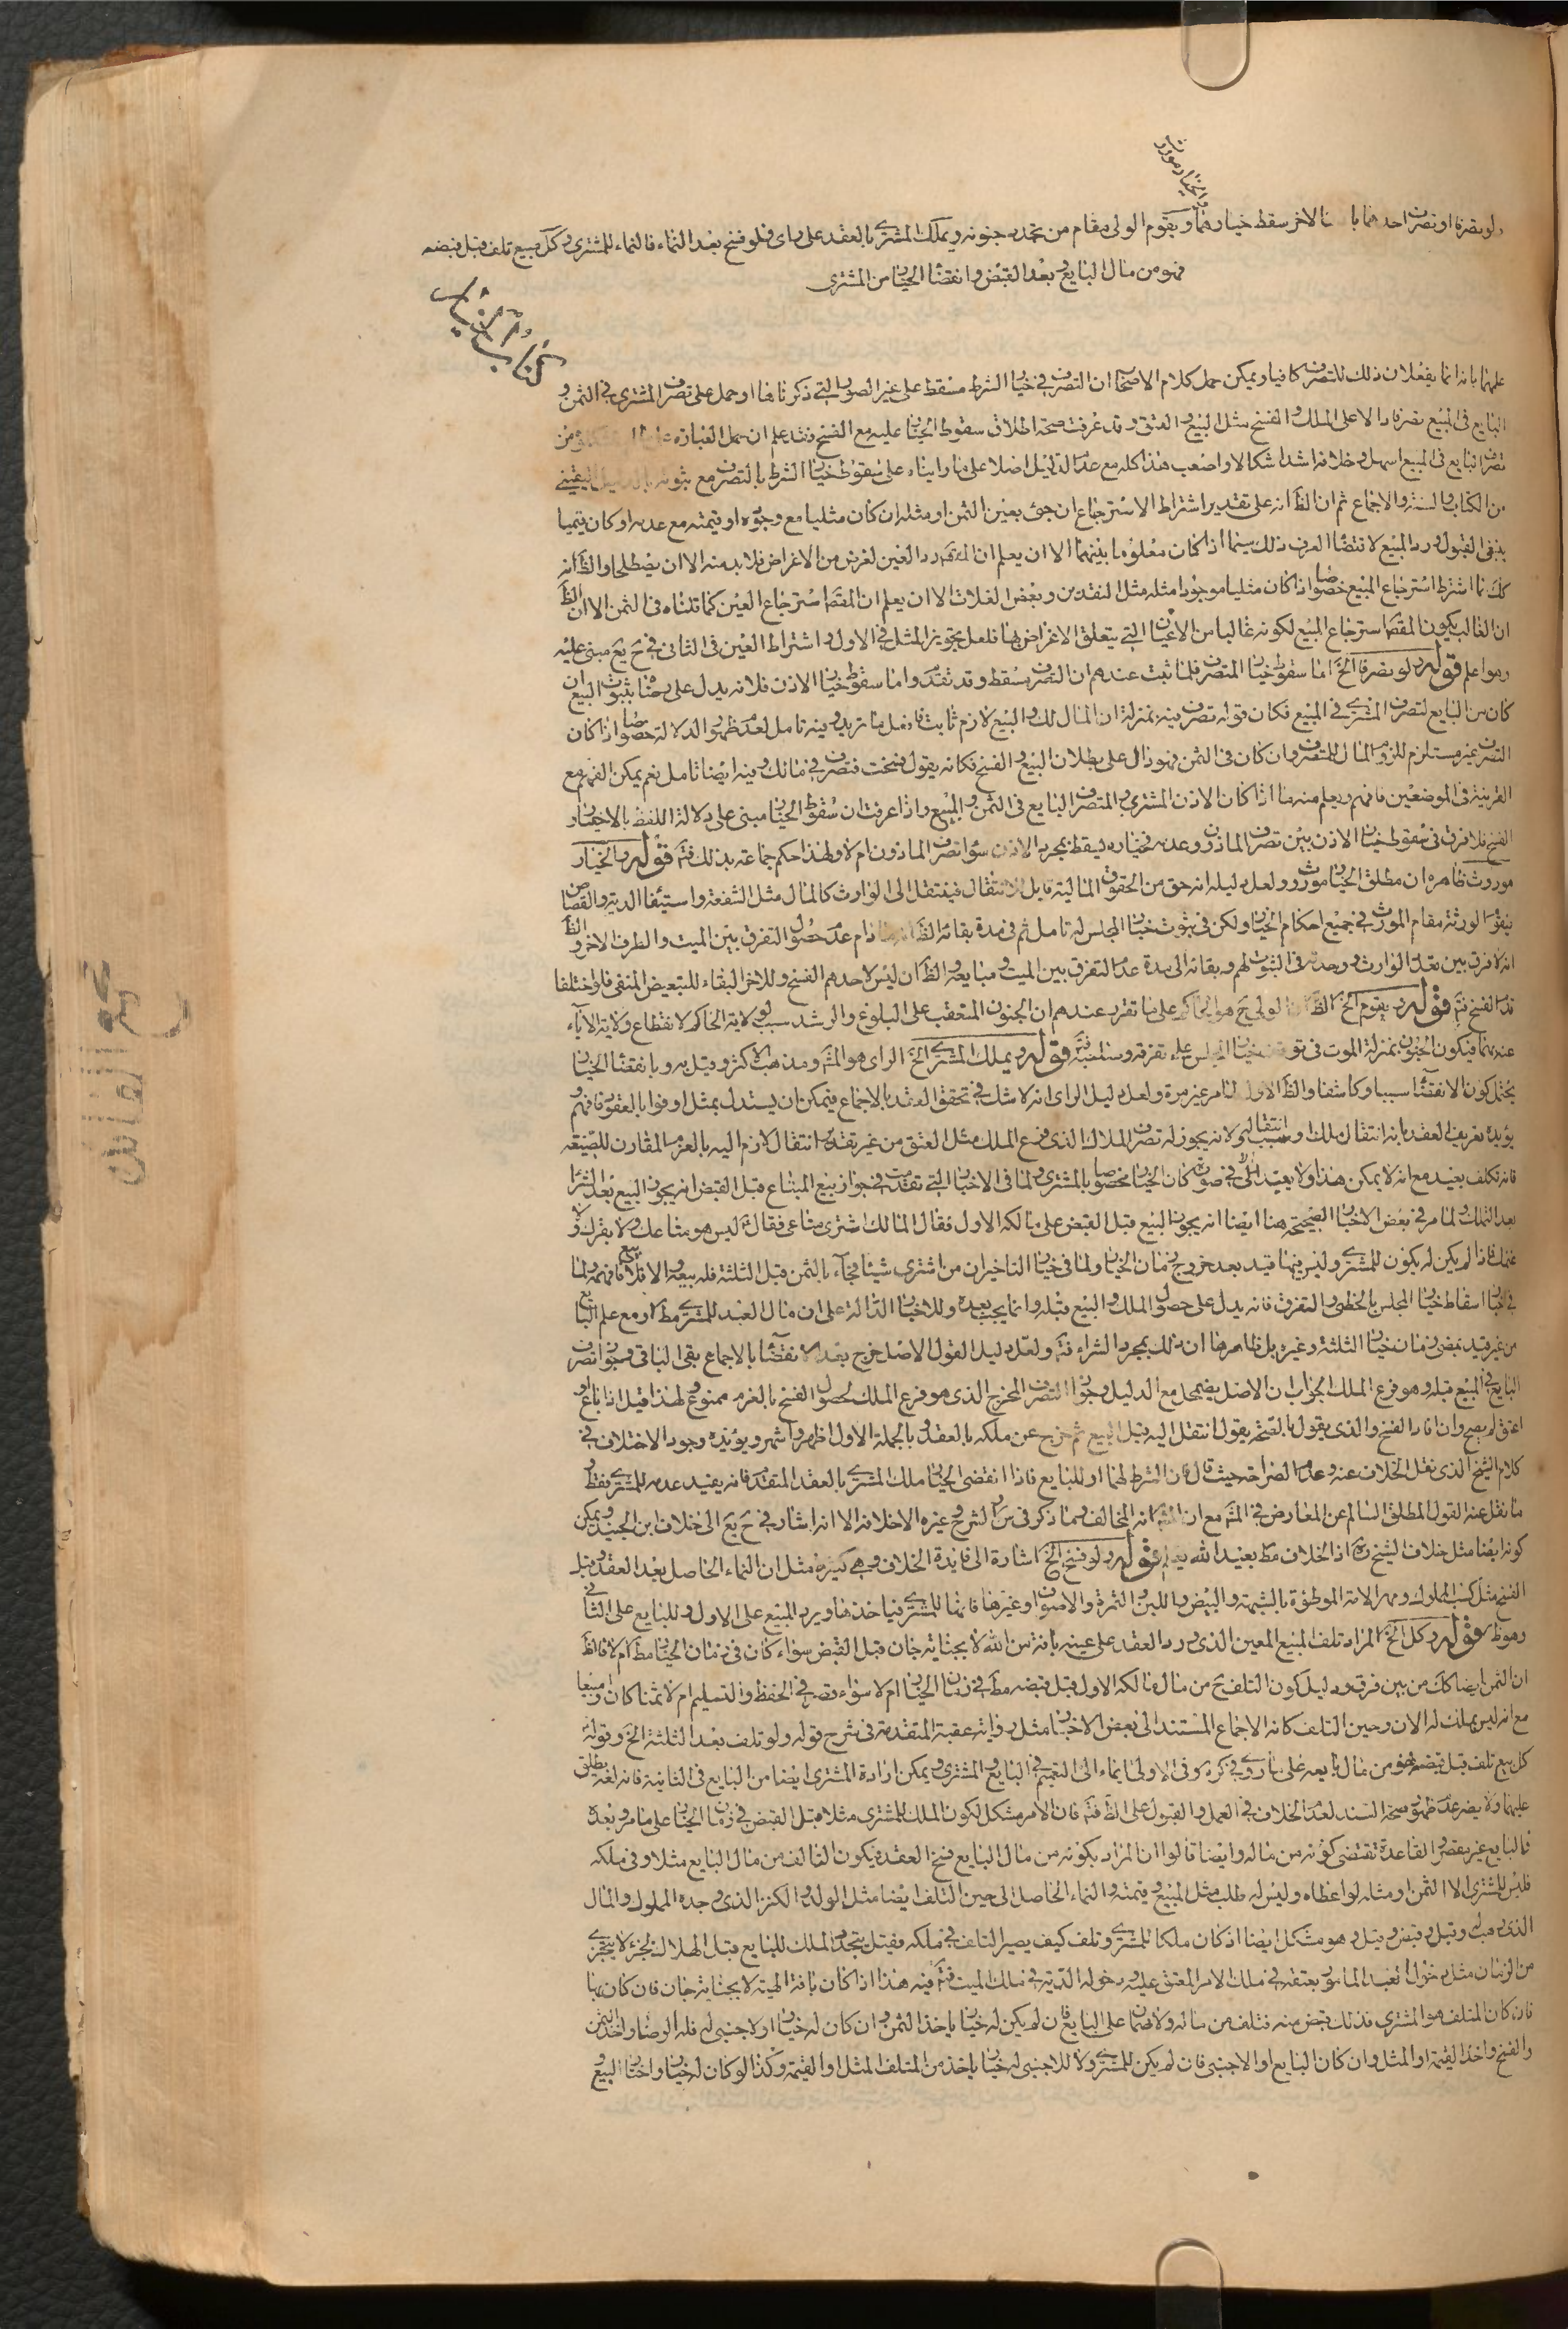 والخيار موروث
ولو تصرفا او تصرف احدهما باذن الاخر سقط خيارهما ويقوم الولي مقام من تجدد جنونه ويملك المشتري بالعقد على راى فلو فسخ بعد النماء فالنماء للمشترى وكل مبيع تلف قبل قبضه
فهو من مال البايع وبعد القبض وانقضاء الخيار من المشترى
عليهما بانهما يفعلان ذلك للتصرف كافيا ويمكن حمل كلام الاصحاب ان التصرف في خيار الشرط مسقط على غير الصورة التي ذكرناها او حمل على تصرف المشترى في الثمن و
البايع في المبيع تصرفا دالا على الملك والفسخ مثل البيع والعتق وقد عرفت صحة اطلاق سقوط الخيار عليه مع الفسخ فقد علم ان حمل العبارة على
تصرف البايع في المبيع اسهل وخلافه اشد اشكالا واصعب هذا كله مع عدم الدليل اصلا على ما رايناه على سقوط خيار الشرط بالتصرف مع ثبوته بالدليل اليقيني
من الكتاب والسنة والاجماع ثم ان الظ انه على تقدير اشتراط الاسترجاع ان جئ بعين الثمن او مثله ان كان مثليا مع وجوده او قيمته مع عدمه او كان قيميا
ينبغي القبول ورد المبيع لاقتضاء العرف ذلك سيما اذا كان معلوما بينهما الا ان يعلم ان المقصود رد العين لغرض من الاغراض فلابد منه الا ان يصطلحا والظ انه
كك لما اشترط استرجاع المبيع خصوصا اذا كان مثليا موجودا مثله مثل النقدين وبعض الغلات الا ان يعلم ان المقص استرجاع العين كما قلناه في الثمن الا ان الظ
ان الغالب يكون المقص استرجاع المبيع لكونه غالبا من الاعيان التي يتعلق الاغراض بها فلعل تجويز المثل في الاول واشتراط العين في الثاني في ح يع مبنى عليه
وهو اعلم قوله ولو تصرفا الخ اما سقوط خيار المتصرف فلما ثبت عندهم ان التصرف مسقط وقد تقدم واما سقوط خيار الاذن فلانه يدل على رضاه بثبوت البيع ان
كان من البايع لتصرف المشتري في المبيع فكان قوله تصرف فيه بمنزلة ان المال لك والبيع لازم ثابت فافعل ما تريد وفيه تامل لعدم ظهور الدلالة خصوصا اذا كان
التصرف غير مستلزم للزوم المال للمتصرف وان كان في الثمن فهو دال على بطلان البيع والفسخ فكانه يقول فسخت فتصرف في مالك وفيه ايضا تامل نعم يمكن الفهم مع
القرينة في الموضعين فافهم ويعلم منه ما اذا كان الاذن المشترى والمتصرف البايع في الثمن والمبيع واذا عرفت ان سقوط الخيار مبنى على دلالة اللفظ بالاختيار و
الفسخ فلا فرق في سقوط خيار الاذن بين تصرف الماذون وعدمه فخياره يسقط بمجرد الاذن سواء تصرف الماذون ام لا ولهذا حكم جماعة بذلك فت قوله والخيار
موروث ظاهره ان مطلق الخيار موروث ولعل دليله انه حق من الحقوق المالية قابل للانتقال فينتقل الى الوارث كالمال مثل الشفعة واستيفاء الدية والقصاص
فيقوم الورثة مقام المورث في جميع احكام الخيار ولكن في ثبوت خيار المجلس له تامل ثم في مدة بقائه الظ انه ما دام عدم حصول التفرق بين الميت والطرف الاخر و الظ
انه لا فرق بين تعدد الوارث ووحدته في الثبوت لهم وبقائه الى مدة عدم التفرق بين الميت ومبايعه والظ ان ليس لاحدهم الفسخ وللاخر البقاء للتبعيض المنفى فلو اختلفا
قدم الفسخ فت قوله ويقوم الخ الظ ان الولى ح هو الحاكم على ما تقرر عندهم ان الجنون المتعقب على البلوغ والرشد سبب لولاية الحاكم لانقطاع ولاية الآباء
عنهما فيكون الجنون بمنزلة الموت في توقف خيار المجلس على تفرقه ومبايعه فت قوله ويملك المشتري الخ الراى هو المش ومذهب الاكثر وقيل به وبانقضاء الخيار
يحتمل كون الانقضاء سببا وكاشفا والظ الاول لما مر غير مرة ولعل دليل الراى انه لا شك في تحقق العقد بالاجماع فيمكن ان يستدل بمثل اوفوا بالعقود فافهم و
يؤيده تعريف العقد بانه انتقال ملك او سبب انتقاله ولانه يجوز له تصرف الملاك الذى فرع الملك مثل العتق من غير تقدير انتقال لازم اليه بالعزم المقارن للصيغة
فانه تكلف بعيد مع انه لا يمكن هذا ولا بعيد الكلى في صورة كان الخيار مخصوصا بالمشترى ولما في الاخبار التي تقدمت في جواز بيع المبتاع قبل القبض انه يجوز البيع بعد الشراء
بعد التملك ولما مر في بعض الاخبار الصحيحة هنا ايضا انه يجوز البيع قبل القبض على مالكه الاول فقال المالك اشترى متاعى فقال ليس هو متاعك ولا بقرك ولا
غنمك فاذا لم يكن له يكون للمشتري وليس فيهما قيد بعد خروج زمان الخيار ولما في خيار التاخير ان من اشترى شيئا فجاء بالثمن قبل الثلثة فله بيعه والا فلا بيع فافهمه ولما
في اخبار اسقاط خيار المجلس بالخطى والتفرق فانه يدل على حصول الملك والبيع قبله وانما يجب بعده وللاخبار الدالة على ان مال العبد للمشتري مط او مع علم البايع
من غير قيد بمضى زمان خيار الثلثة وغيره بل ظاهرها ان ذلك بمجرد الشراء فت ولعل دليل القول الاصل خرج بعد الانقضاء بالاجماع بقى الباقي وجواز تصرف
البايع في المبيع قبله وهو فرع الملك والجواب ان الاصل يضمحل مع الدليل وجواز التصرف المخرج الذى هو فرع الملك لحصول الفسخ بالعزم ممنوع ولهذا قيل اذا باع او
اعتق لم يصح وان افاد الفسخ والذى يقول بالصحة يقول انتقل اليه قبل البيع ثم خرج عن ملكه بالعقد وبالجملة الاول اظهر واشهر ويؤيده وجود الاختلاف في
كلام الشيخ الذى نقل الخلاف عنه وعدم الصراحة حيث قال فان الشرط لهما او للبايع فاذا انقضى الخيار ملك المشتري بالعقد المتقدم فانه يفيد عدمه للمشتري فقط و
ما نقل عنه القول المطلق السالم عن المعارض في المش مع ان المش انه المخالف وما ذكر في س والشرح غيره الا خلافه الا انه اشار في ح يع الى خلاف ابن الجنيد ويمكن
كونه ايضا مثل خلاف الشيخ ره اذ الخلاف مط بعيد الله يعلم قوله ولو فسخ الخ اشارة الى فايدة الخلاف وهي كثيرة مثل ان النماء الحاصل بعد العقد وقبل
الفسخ مثل كسب المملوك ومهر الامة الموطوءة بالشبهة والبيض واللبن والثمرة والاصوف او غيرها فانها للمشتري فياخذها ويرد المبيع على الاول وللبايع على الثاني
وهو ظ قوله وكل الخ المراد تلف المبيع المعين الذى ورد العقد على عينه بافة من الله لا بجناية جان قبل القبض سواء كان في زمان الخيار مط ام لا فالظ
ان الثمن ايضا كك من بين فرق ودليل كون التلف ح من مال مالكه الاول قبل قبضه مط في زمان الخيار ام لا سواء قصر في الحفظ والتسليم ام لا ثمنا كان او مبيعا
مع انه ليس بملك له الان وحين التلف كانه الاجماع المستند الى بعض الاخبار مثل رواية عقبة المتقدمة في شرح قوله ولو تلف بعد الثلثة الخ وقوله ص
كل مبيع تلف قبل قبضه فهو من مال بايعه على ما روى في كره وفي الاولى ايماء الى التعميم في البايع والمشترى ويمكن ارادة المشترى ايضا من البايع في الثانية فانه لغة يطلق
عليهما ولا يضر عدم ظهور صحة السند لعدم الخلاف في العمل والقبول على الظ فت فان الامر مشكل لكون الملك للمشترى مثلا قبل القبض في زمان الخيار على ما مر وبعده
فالبايع غير مقصر والقاعدة تقتضى كونه من ماله وايضا قالوا ان المراد بكونه من مال البايع فسخ العقد فيكون التالف من مال البايع مثلا وفي ملكه
فليس للمشترى الا الثمن او مثله لو اعطاه وليس له طلب مثل المبيع وقيمته والنماء الحاصل الى حين التلف ايضا مثل الولد والكنز الذى وجده المملوك والمال
الذى وهب له وقبل وقبض وقيل وهو مشكل ايضا اذ كان ملكا للمشتري وتلف كيف يصير التالف في ملكه فقيل يتجدد الملك للبايع قبل الهلاك لجزء لا يتجزى
من الزمان مثل دخول العبد المامور بعتقه في ملك الامر المعتق عليه ودخول الدية في ملك الميت فت فيه هذا اذا كان بافة الهية لا بجناية جان فان كان بها
فان كان المتلف هو المشترى فذلك قبض منه فتلف من ماله ولا ضمان على البايع فان لم يكن له خيار ياخذ الثمن وان كان له خيار او لاجنبى له فله الرضا واخذ الثمن
والفسخ واخذ القيمة او المثل وان كان البايع او الاجنبى فان لم يكن للمشتري ولا للاجنبى له خيار ياخذ من المتلف المثل او القيمة وكذا لو كان له خيار واختار البيع